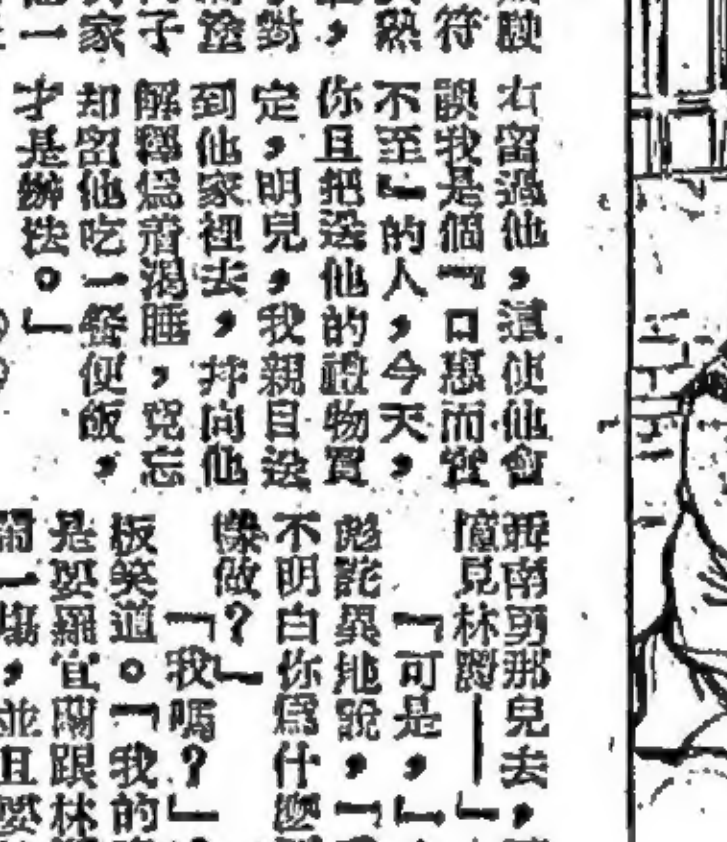 符
熟
，
對
塗
子
家
一
右留過他，這使他會
誤我是個「口惠而實
不至」的人，今天，
你且把送他的禮物買
定，明兒，我親自送
到他家裡去，并向他
解釋為着渴睡，竟忘
却留他吃一餐便飯，
才是辦法。」
南 那兒去，
見林爵——」
「可是，」
彪詫異地說，「
不明白你爲什麼
樣做？」
「我嗎？」
板笑道。「我的
是要羅宜蘭跟林
一場，並且要